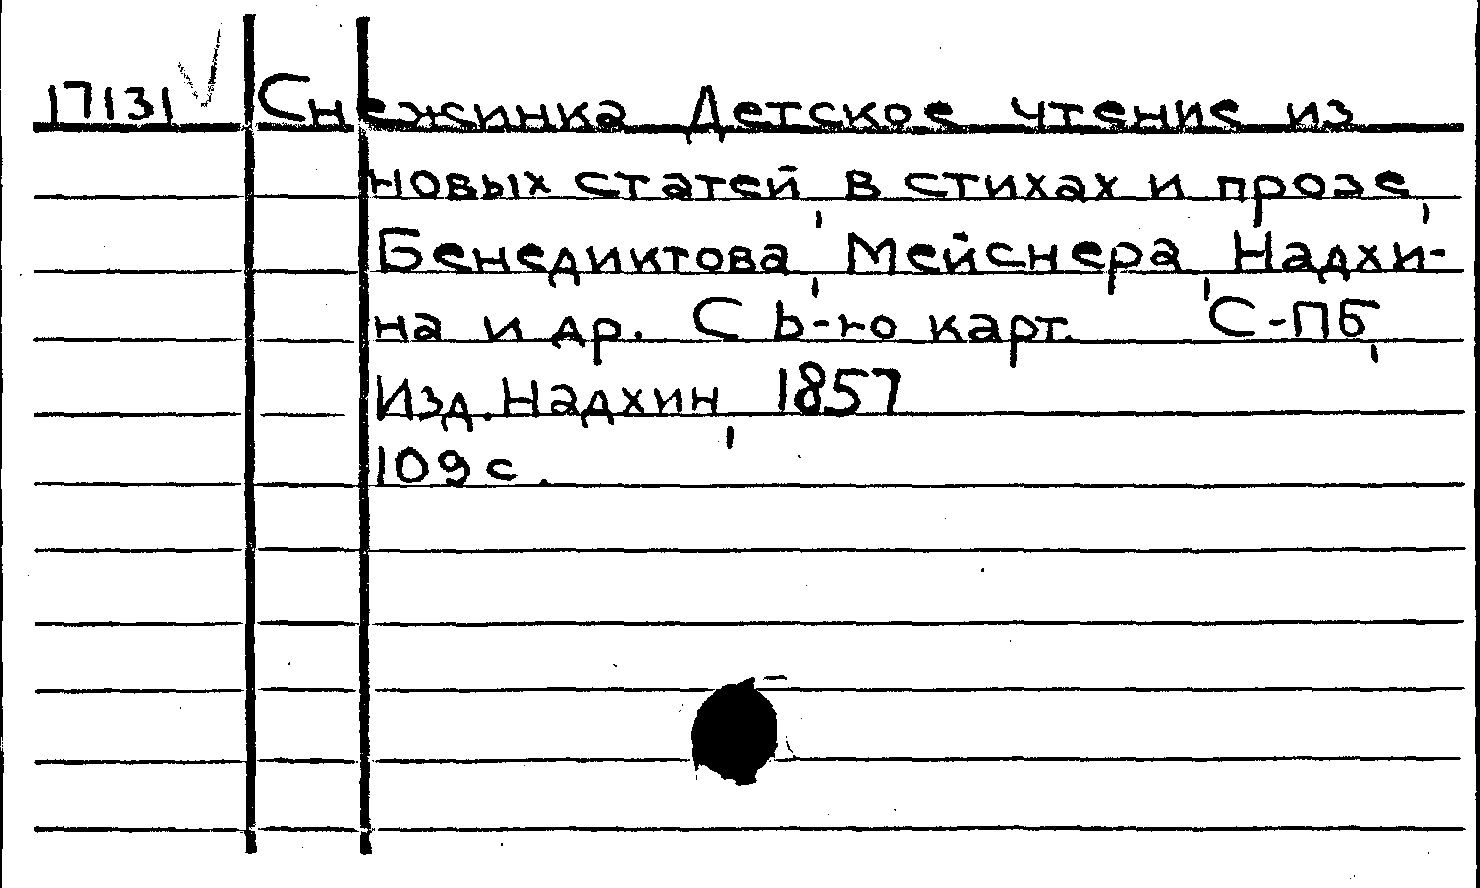 17131 Снежинка Детское чтение из
новых статей, в стихах и прозе,
Бенедиктова, Мейснера, Надхи-
на и др. С 6-ю карт. С-ПБ,
Изд. Надхин, 1857
109 с.